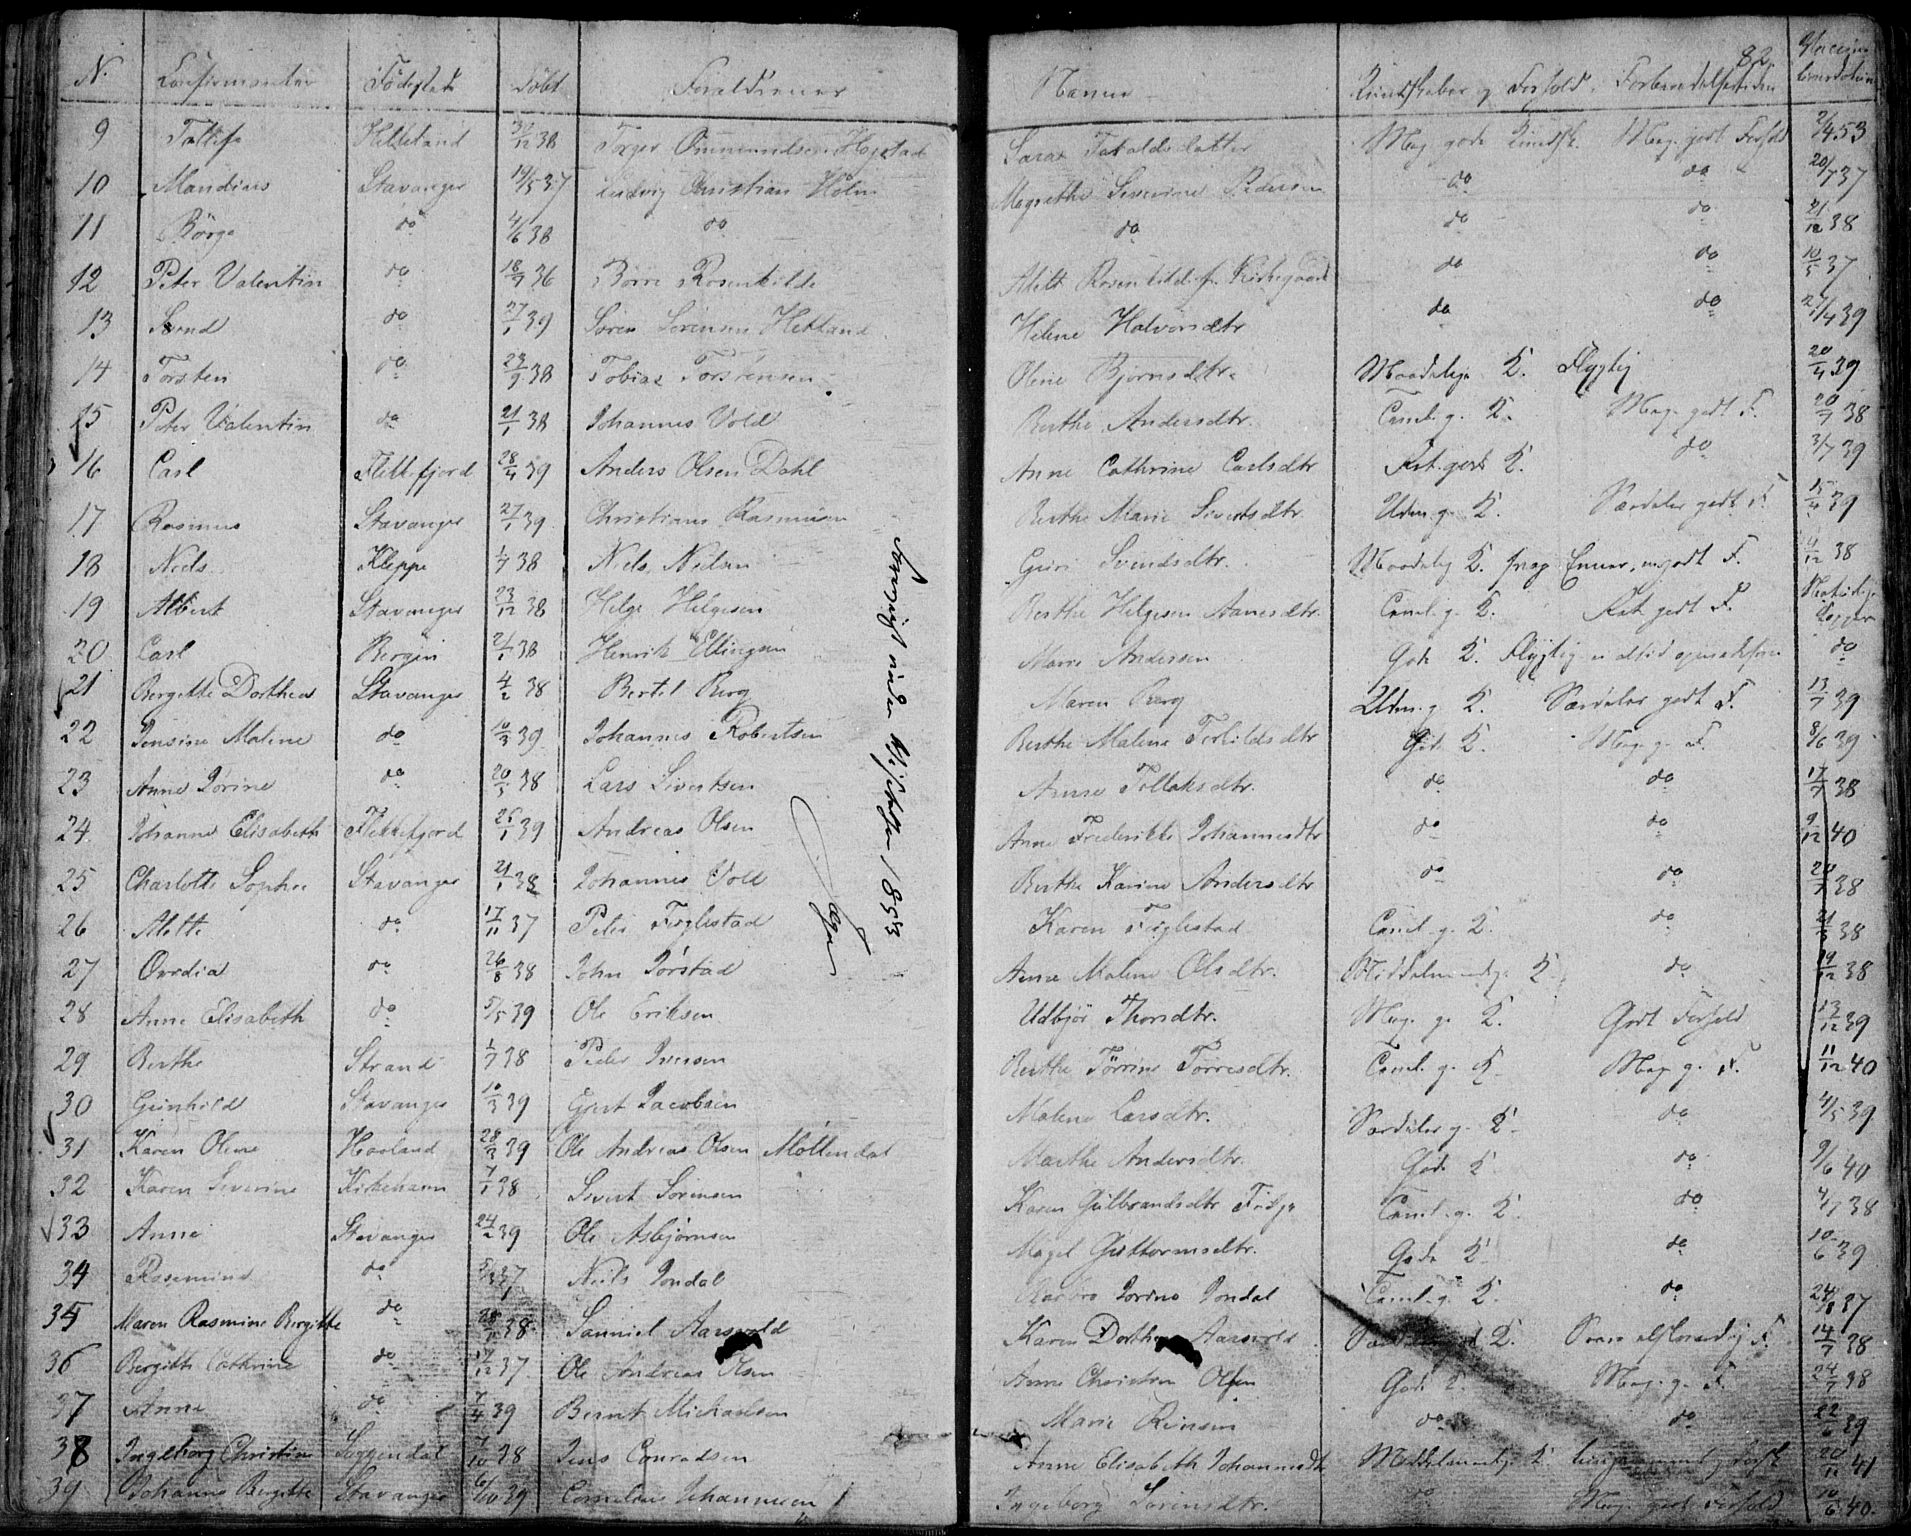 82.
N. Confirmanter Födested Döbt Forældrenes Navne Kundskaber og Forhold i Forberedelsestiden
9 Tollef Hetland 12 38 Torger Ommundsen Sara Meg. gode Kundsk. Meg. godt Forhold 53
10 Mandius Stavanger 19/5 37 Ludvig Christian Holm Magrethe Severine Pedersen do do 20/7 37
11 Börge do 4/6 38 do do do do 21/12 38
12 Peter Valentin do 18/9 36 Börre Rosenkilde Rosenkilde f. Kirkegaard do do 10/5 37
13 Svend do 27/1 39 Sören Sörensen Hetland Helene Halvorsdtr do do 27/4 39
14 Torsten do 23/9 38 Tobias Olene Björnsdtr. Maadelige K. Flygtig 20/4 39
15 Peter Valentin do 21/1 38 Johannes Vold Berthe Andersdtr. Teml. g. K. Meg. godt F. 20/7 38
16 Carl Flekkefjord 28/4 39 Anders Olsen Dahl Anne Cathrine Carlsdtr godt K. do 3/7 39
17 Rasmus Stavanger 27/1 39 Christian Rasmusen Berthe Marie Sivertsdtr Udm. g. K. Særdeles godt F. 15/4 39
18 Niels Kleppe 1/7 38 Niels Nielsen Guri Svendsdtr. Maadelig K. godt F. 4/12 38
19 Albert Stavanger 23/12 38 Helge Helgesen Berthe Helgesen Aanesdtr. Teml. g. K. godt F. Naturlige Kopper
20 Carl Bergen 2/1 38 Henrik Ellingsen Marie Andersen Gode K. Flygtig do
21 Bergitte Dorthea Stavanger 4/2 38 Bertel Berg Maren Berg Udm. g. K. Særdeles godt F. 13/7 39
22 Jensine Malene do 10/3 39 Johannes Robertsen Berthe Malene Gode K. Meg. g. F. 8/6 39
23 Anne Jörine do 20/5 38 Lars Sivertsen Anne Tollaksdtr. do do 17/7 38
24 Johanne Elisabeth Flekkefjord 1 39 Andreas Olsen Anne Frederikke Johannesdtr do do 9/12 40
25 Charlotte Sophie Stavanger 21/1 38 Johannes Vold Berthe Karine Andersdtr do do 20/7 38
26 Mette do 17/11 37 Peter Fuglestad Karen Fuglestad Teml. g. K. do 21/3 38
27 Ovedia do 26/8 38 John Jörstad Anne Malene Olsdtr. Middelmaadige K. do 19/12 38
28 Anne Elisabeth do 5/5 39 Ole Eriksen Udbjör Thorsdtr. Meg. g. K. Godt Forhold 13/12 39
29 Berthe Strand 1/7 38 Peder Iversen Berthe Törrine Törresdtr. Teml. g. K. Meg. g. F. 11/12 40
30 Gunhild Stavanger 10/3 39 Gjert Jacobsen Malene Larsdtr. Særdeles g. K. do 4/5 39
31 Karen Olene Haaland 28/2 39 Ole Andreas Olsen Möllendal Marthe Andersdtr. Gode K. do 9/6 40
32 Karen Severine Kirkehavn 7/1 38 Sivert Sörensen Karen Gulbrandsdtr Teml. g. K. do 4/7 38
33 Anne Stavanger 24/2 39 Ole Asbjörnsen Magel Guttormsdtr. Gode K. do 10/6 39
34 Rosemine do 37 Niels Jondal Barbro Jorine Jondal Teml. g. K. do 24/8 37
35 Maren Rasmine Bergitte do 28/1 38 Samuel Aarsvold Karen Dorthea Aarsvold K. F. 14/7 38
36 Bergitte Cathrine do 17/12 37 Ole Andreas Olsen Anne Olsen Gode K. Meg. g. F. 24/7 38
37 Anne do 7/4 39 Bernt Michaelsen Marie do do 22/6 39
38 Ingeborg Christine Soggendal 7/10 38 Jens Conradsen Anne Elisabeth Johannesdtr Middelmaadige K. 20/11 41
39 Johanne Bergitte Stavanger 6/10 39 Cornelius Johannesen Ingeborg Sörensdtr. do Meg. godt Forhold 10/6 40.
1853